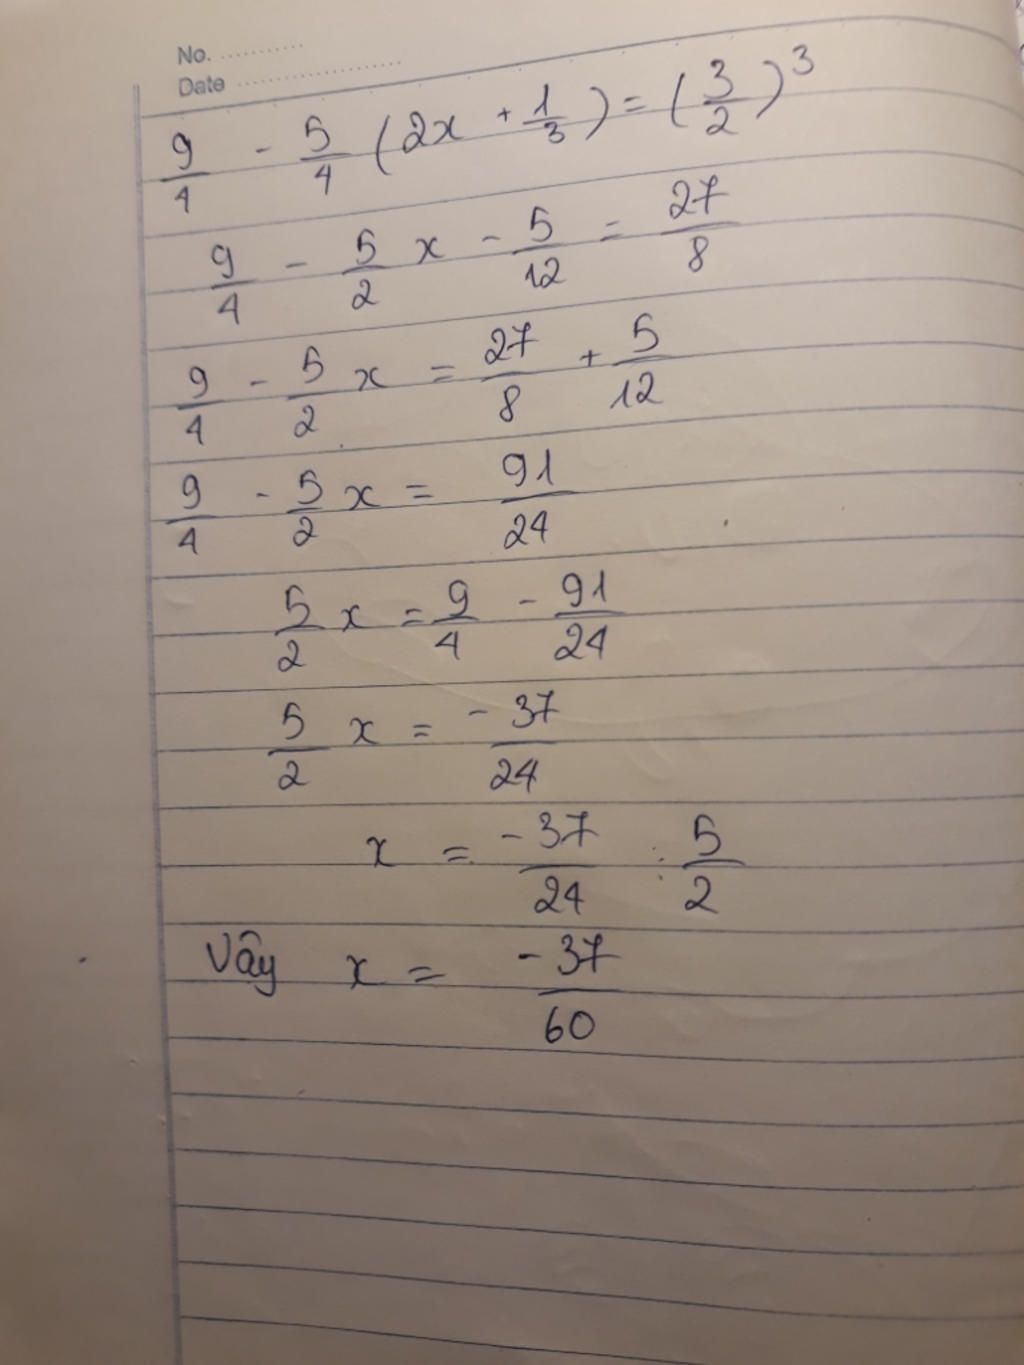 No. ............
Date ........................
9/4 - 5/4 (2x + 1/3) = (3/2)^3
9/4 - 5/2 x - 5/12 = 27/8
9/4 - 5/2 x = 27/8 + 5/12
9/4 - 5/2 x = 91/24
5/2 x = 9/4 - 91/24
5/2 x = -37/24
x = -37/24 : 5/2
Vậy x = -37/60